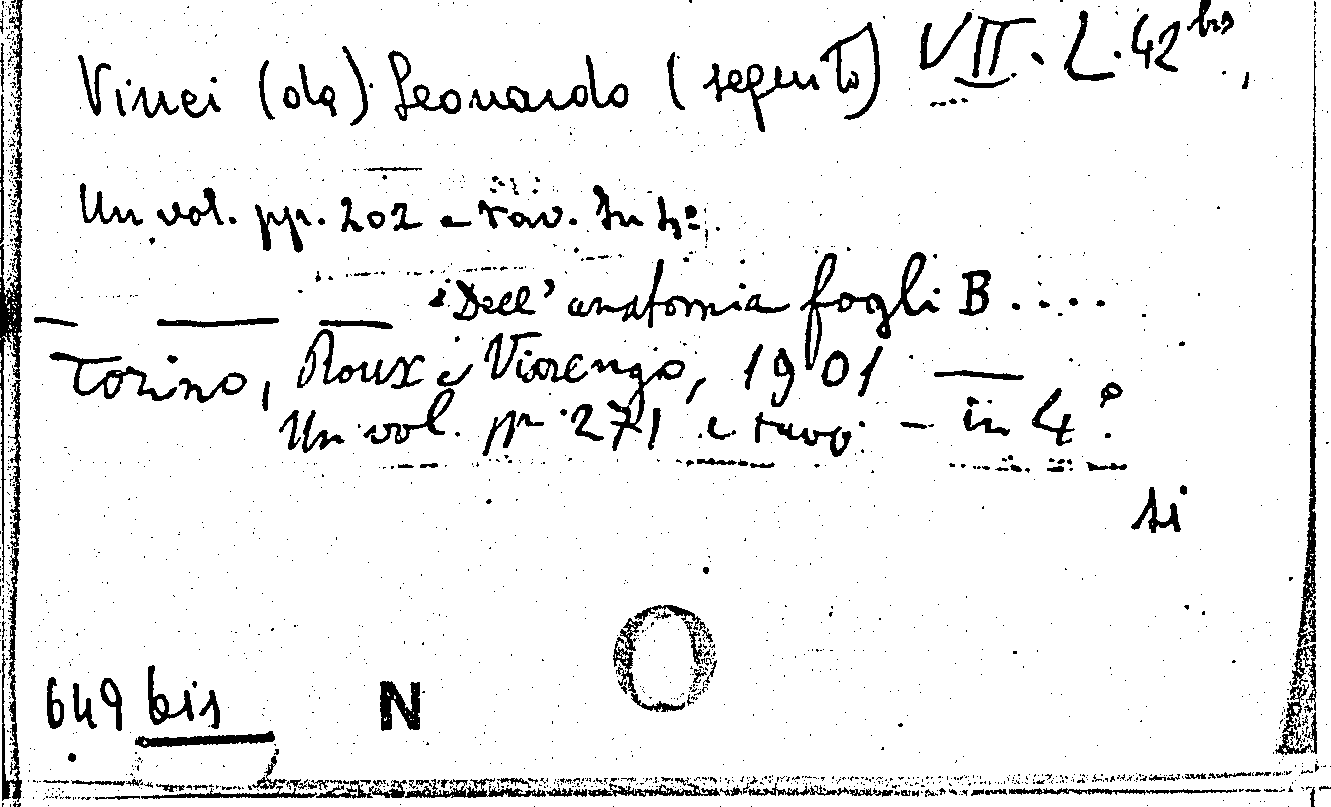 Vinci (da) Leonardo (seguito) VII. L. 42 bis
Un vol. pp. 202 e tav. In 4º.
Dell'anatomia fogli B....
Torino, Roux e Viarengo, 1901 —
Un vol. pp 271 e tavv. – in 4º.
si
649 bis N